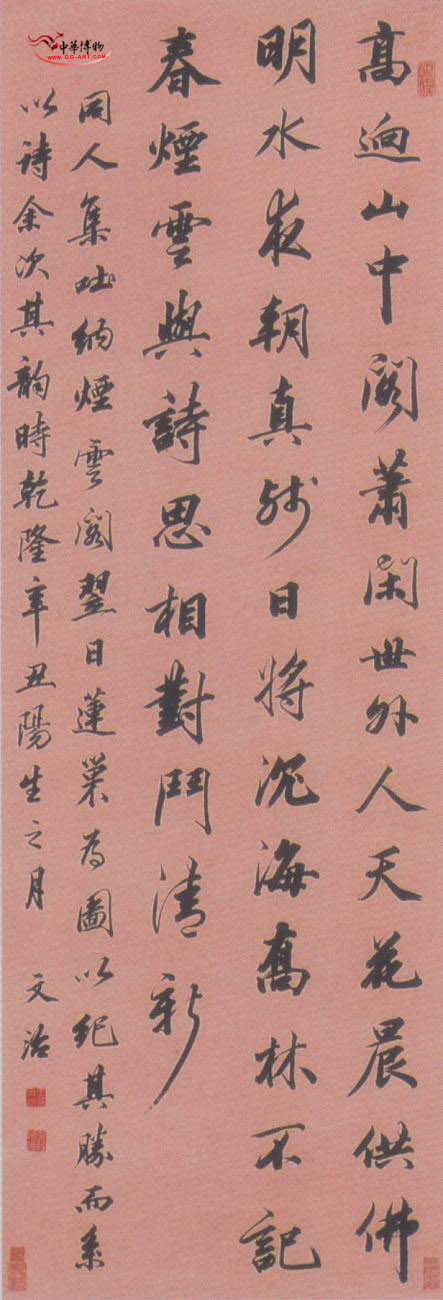 高迥山中閣蕭閑世外人天花晨供佛
明水夜朝真殘日將沉海喬林不記
春煙雲與詩思相對鬥清新
同人集吐納煙雲閣翌日蓮巢為圖以紀其勝而系
以詩余次其韵時乾隆辛丑陽生之月
文治
中華博物
WWW.GG-ART.COM